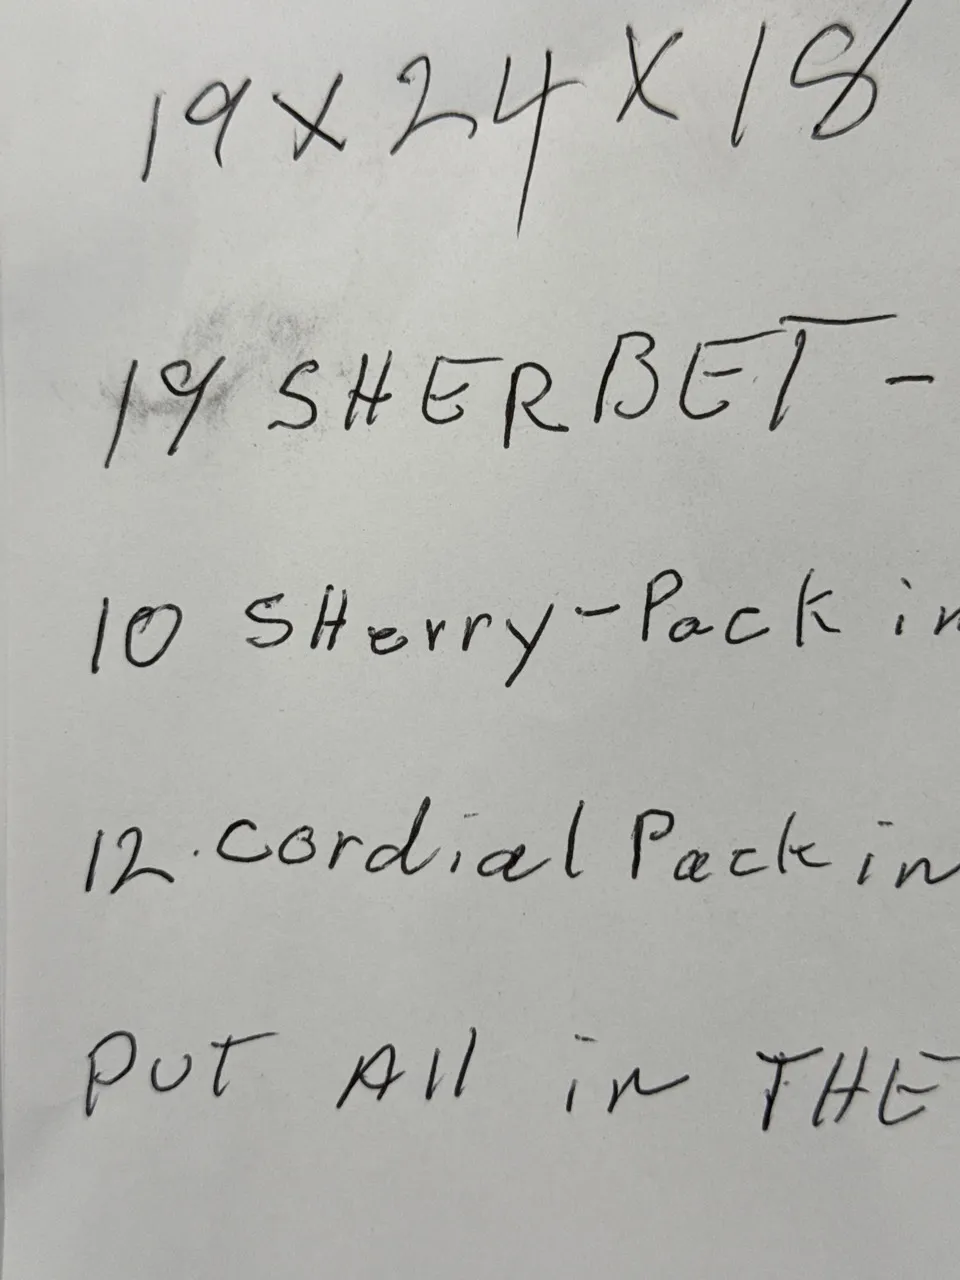 19 x 24 x 18
19 SHERBET -
10 SHerry - Pack in
12. Cordial Pack in
PUT All in THE